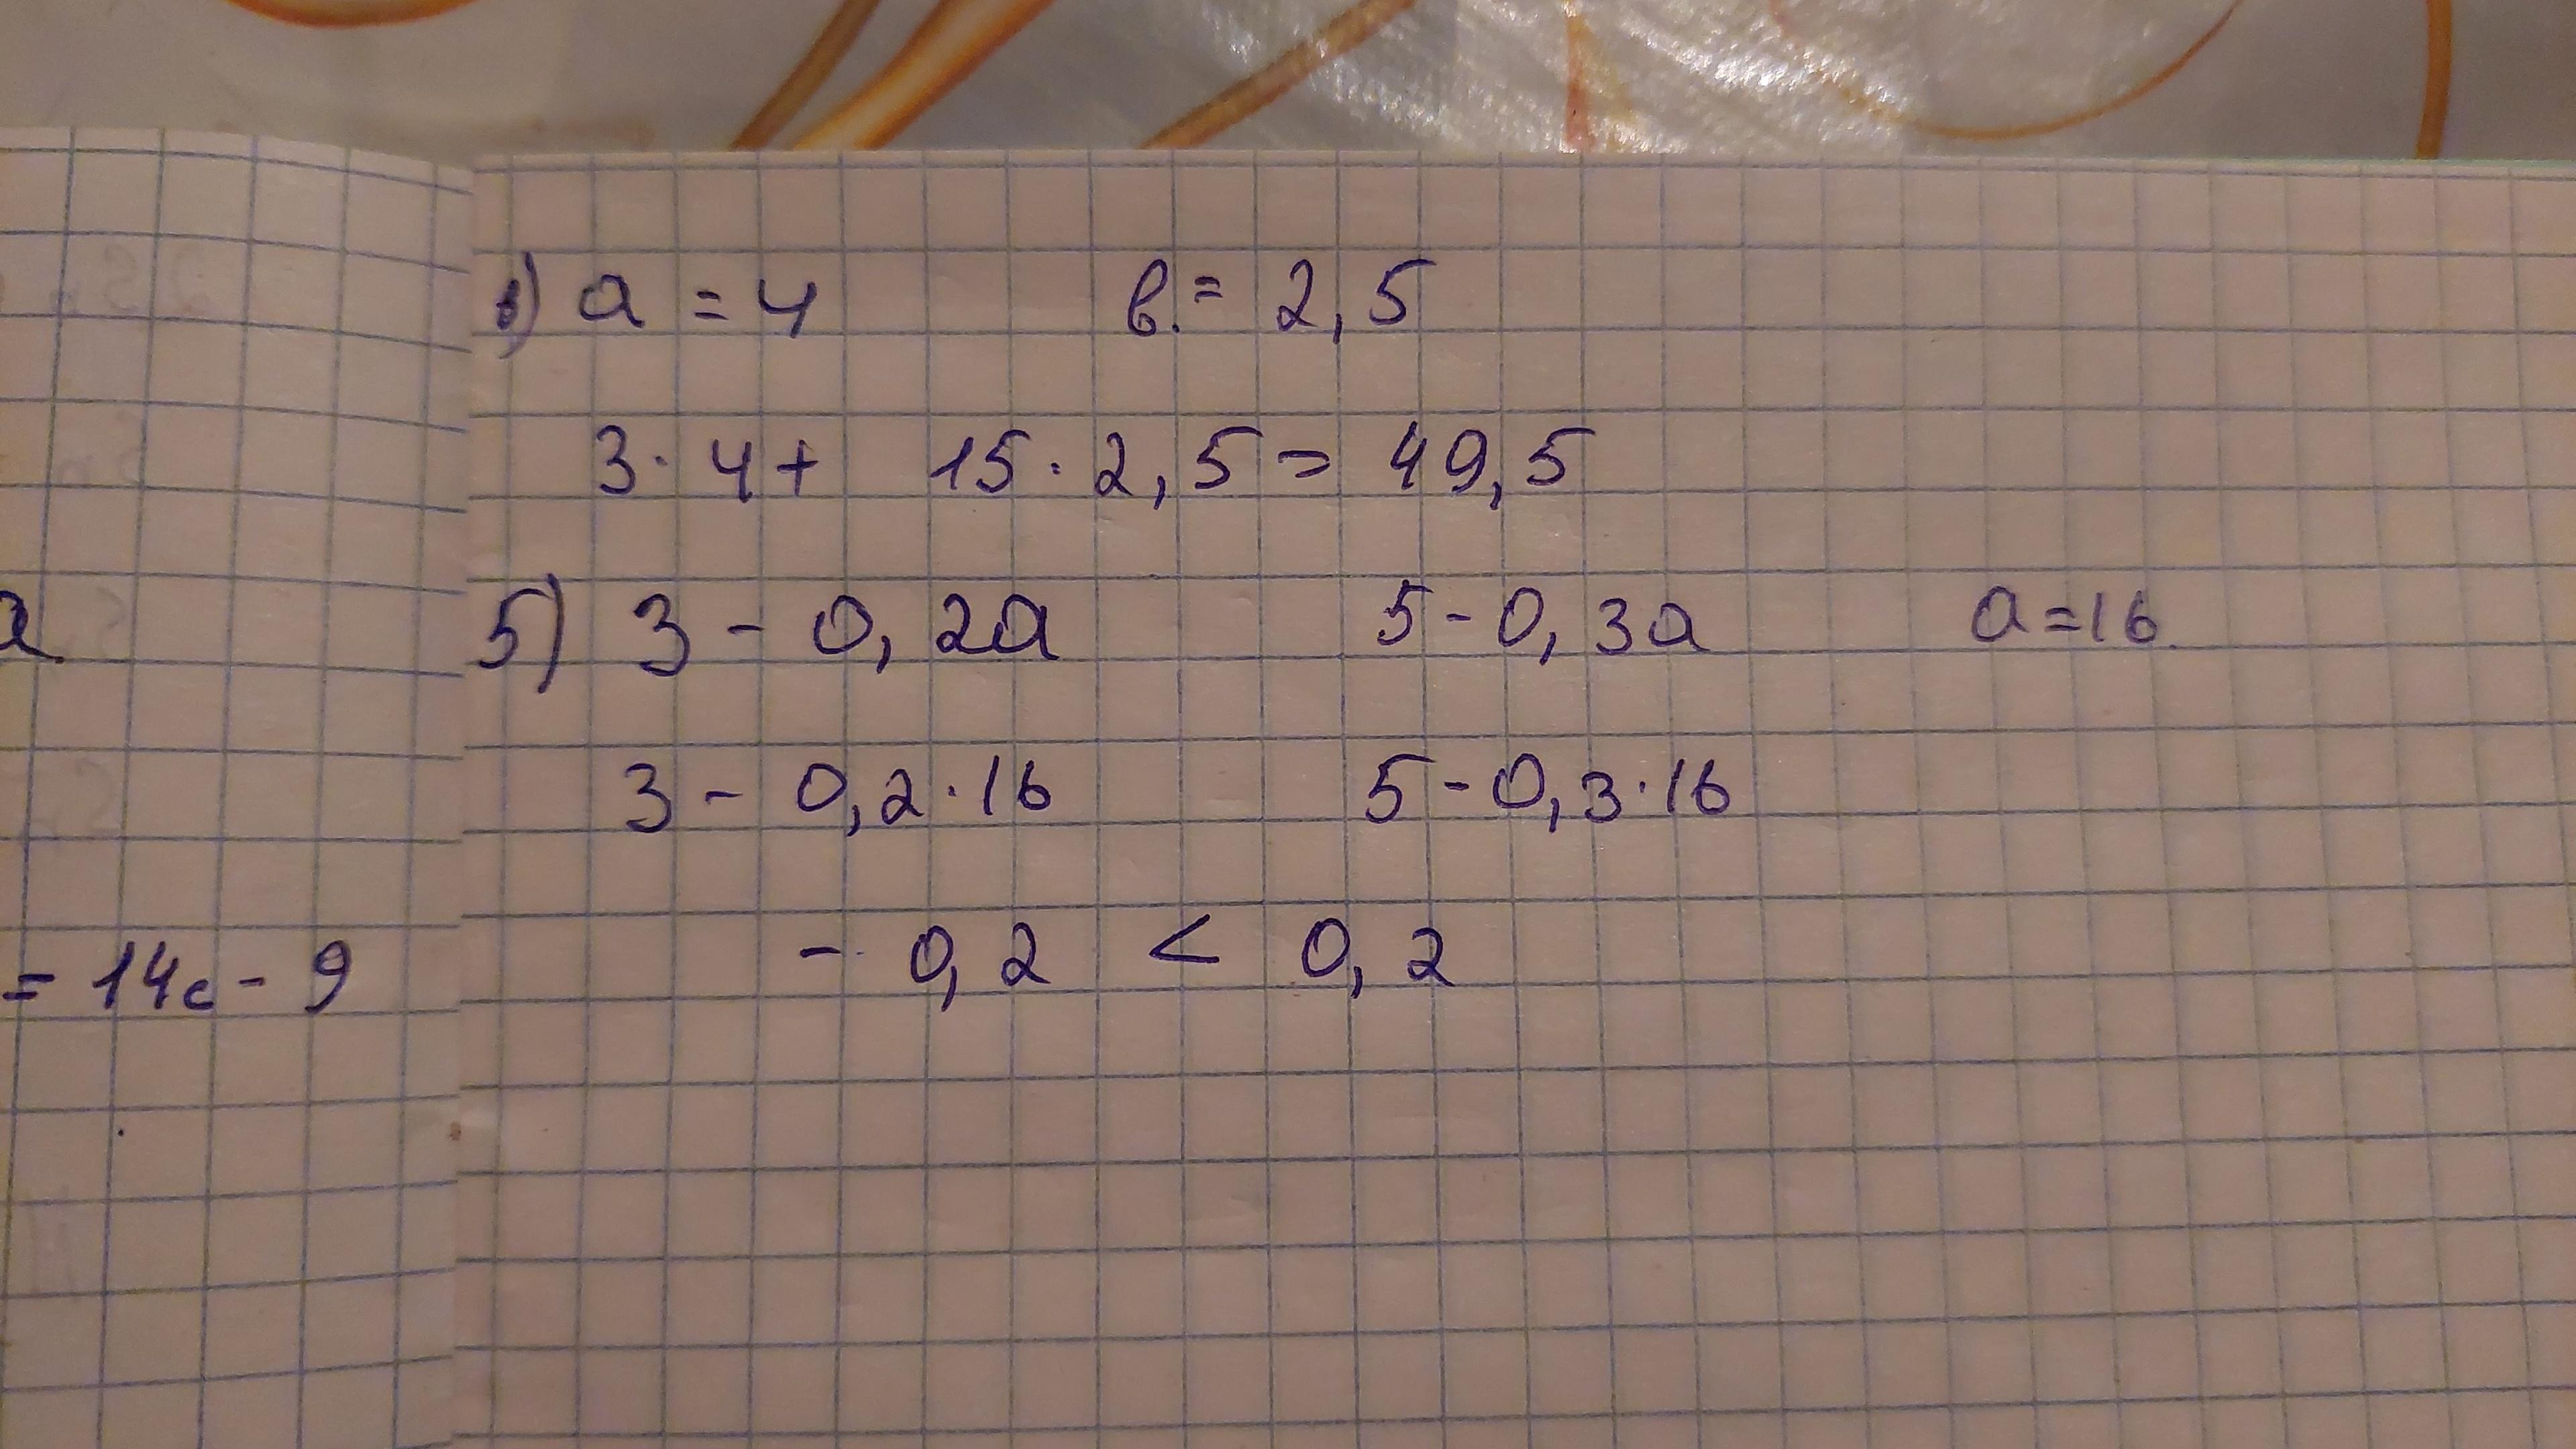 в) a = 4 в = 2,5
3 · 4 + 15 · 2,5 = 49,5
a
5) 3 - 0,2a 5 - 0,3a a = 16
3 - 0,2 · 16 5 - 0,3 · 16
- 0,2 < 0,2
= 14c - 9